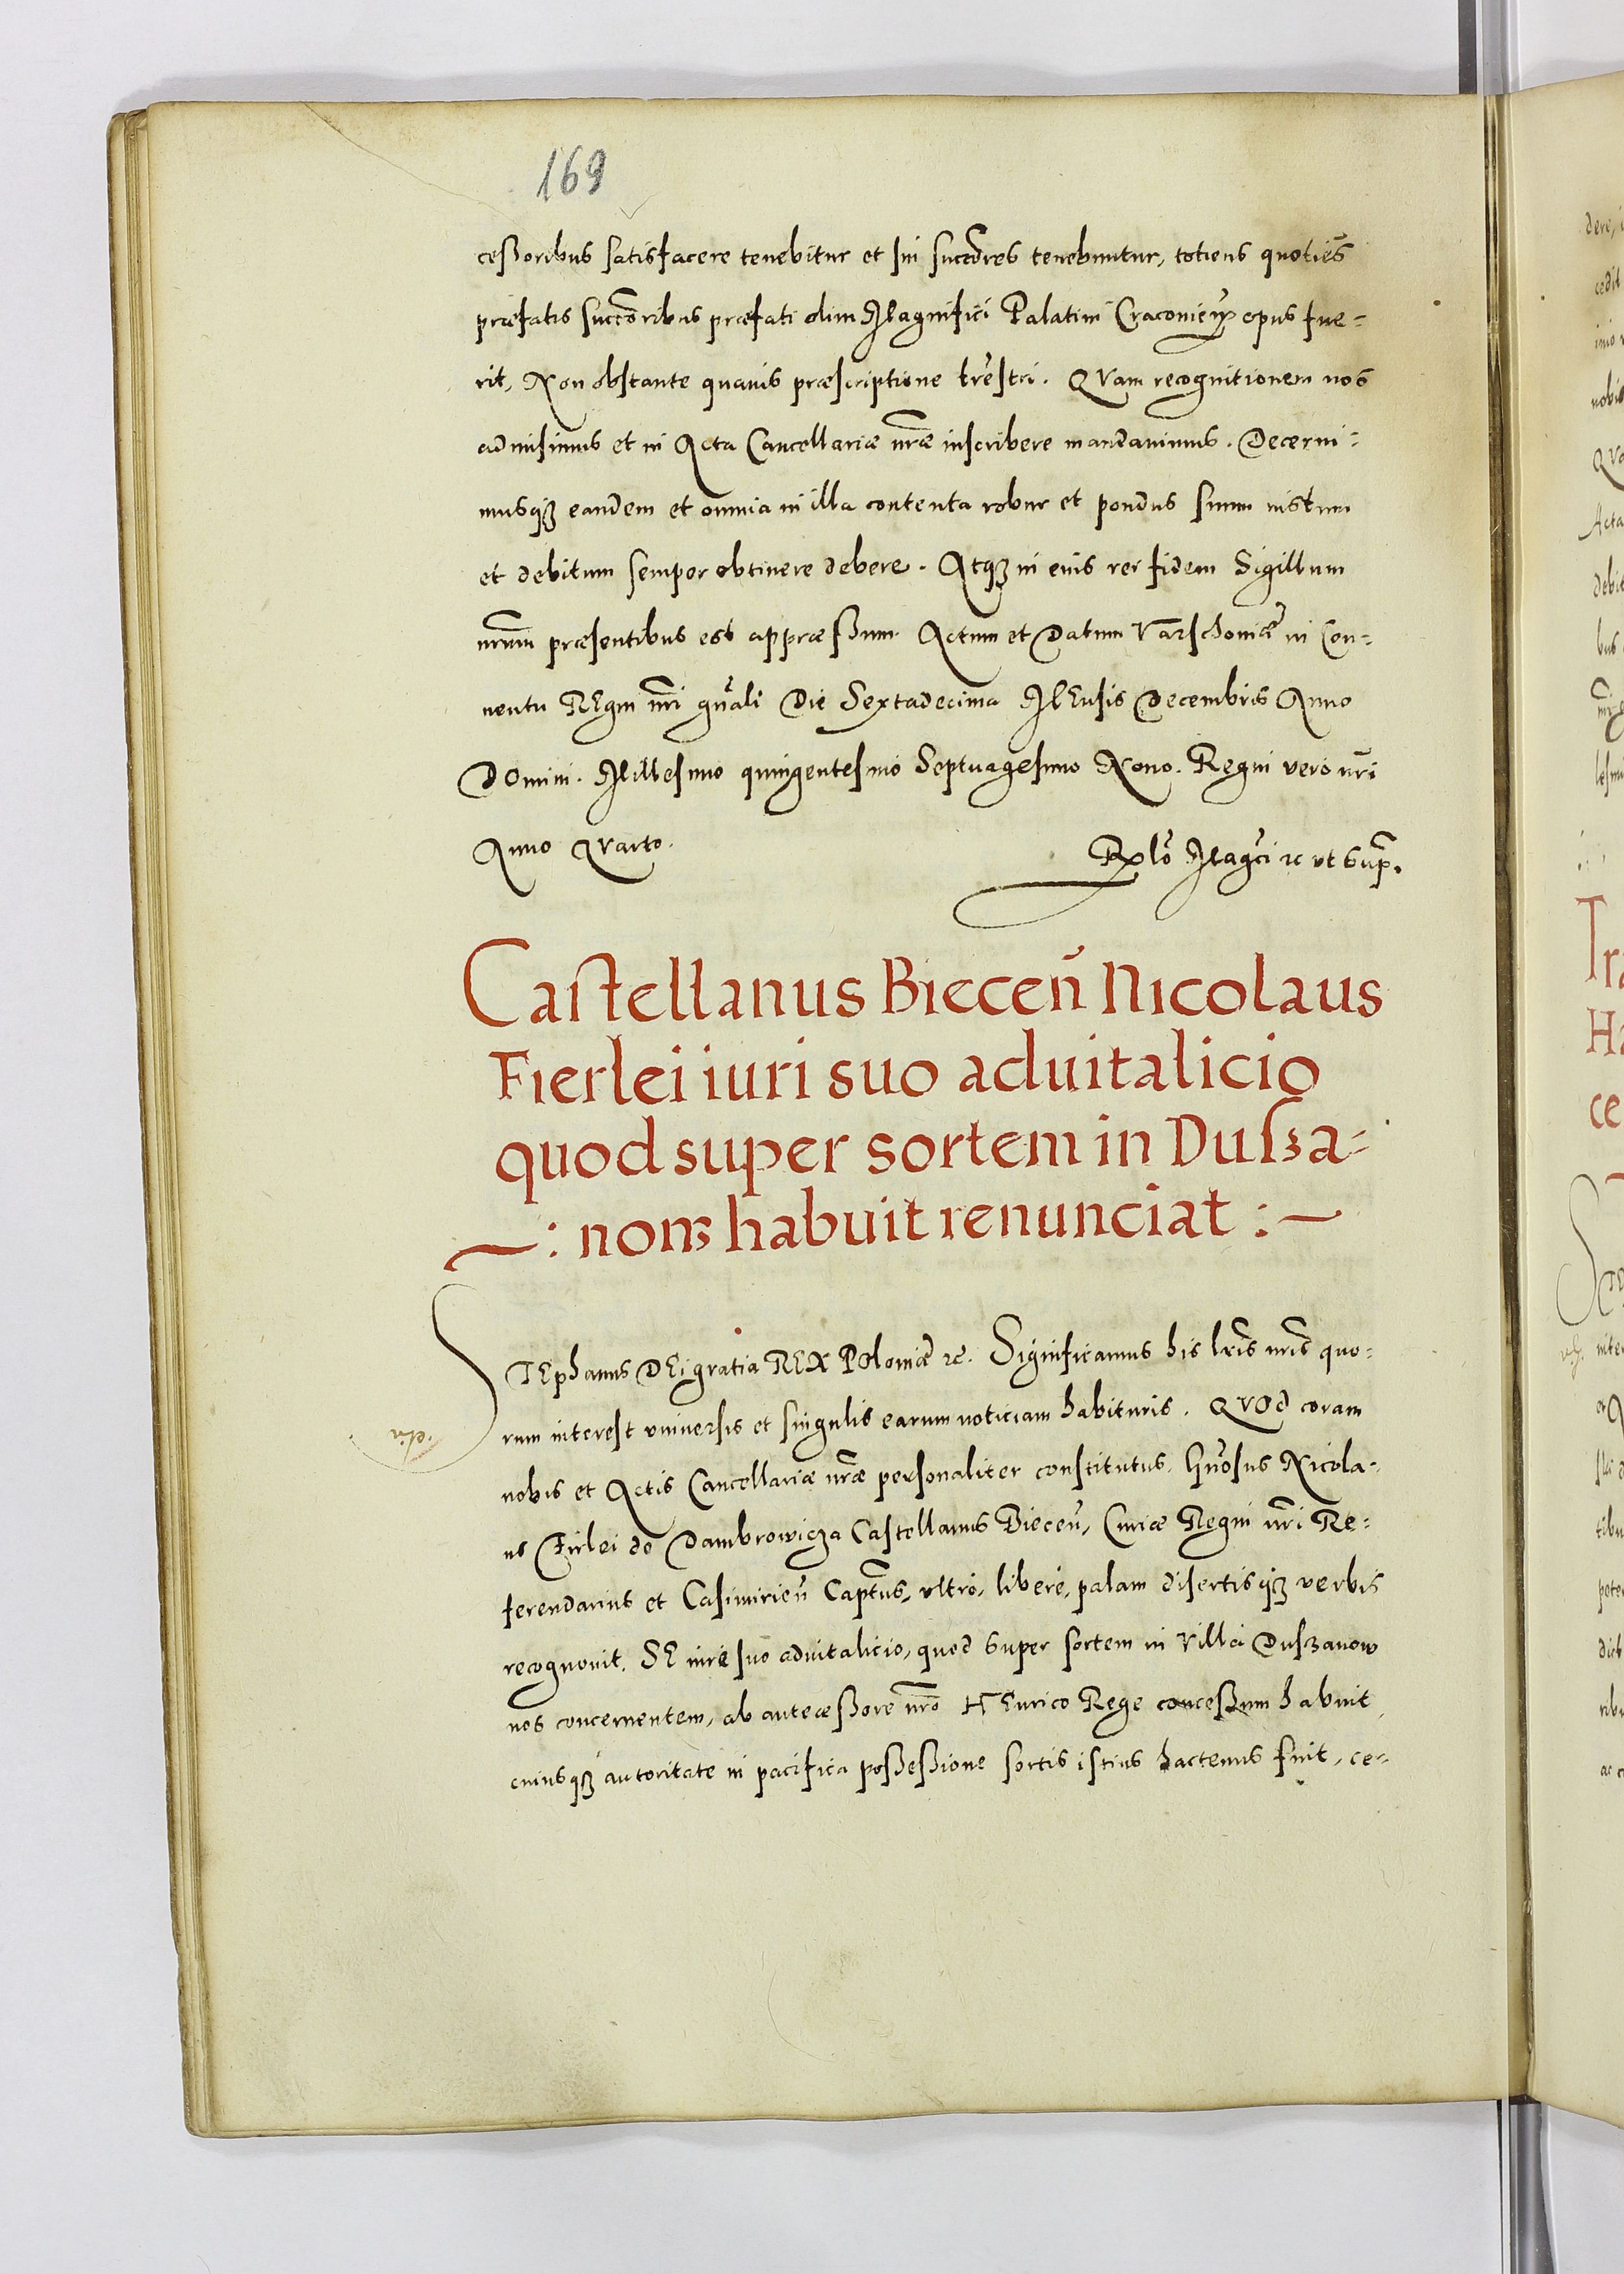 169
cessoribus satisfacere tenebitur et sui succẽores tenebuntur, totiens quotiẽs
præfatis succẽoribus præfati olim Magnifici Palatini Cracovieñ opus fue-
rit, Non obstante quavis præscriptione tr̃estri. QVam recognitionem nos
admisimus et in Acta Cancellariæ nr̃æ inscribere mandavimus. Decerni-
musq3 eandem et omnia in illa contenta robur et pondus suum iustum
et debitum semper obtinere debere. Atq3 in eius rei fidem Sigillum
nr̃um præsentibus est appræssum. Actum et Datum Varschoviæ in Con-
ventu REgni nr̃i gñali Die Sextadecima MEnsis Decembris Anno
DOmini. Millesimo quingentesimo Septuagesimo Nono. Regni vero nr̃i
Anno Qvarto.
Relõ Magc̃i rc ut supr̃.
Castellanus Bieceñ Nicolaus
Fierlei iuri suo aduitalicio
quod super sortem in Dusza-
: nom habuit renunciat :
STEphanus DEi gratia REX POloniæ rc. Significamus his lr̃is nr̃is quo-
rum interest vniversis et singulis earum noticiam habituris. QVOd coram
nobis et Actis Cancellariæ nr̃æ personaliter constitutus. Gñosus Nicola-
us Firlei de Dambrowicza Castellanus Bieceñ, Curiæ Regni nr̃i Re-
ferendarius et Casimirieñ Capt̃us, vltro, libere, palam disertisq3 verbis
recognovit. SE iure suo aduitalicio, quod super sortem in Villa Duszanow
nos concernentem, ab antecessore nr̃o HEnrico Rege concessum habuit,
cuiusq3 autoritate in pacifica possessione sortis istius hactenus fuit, ce-